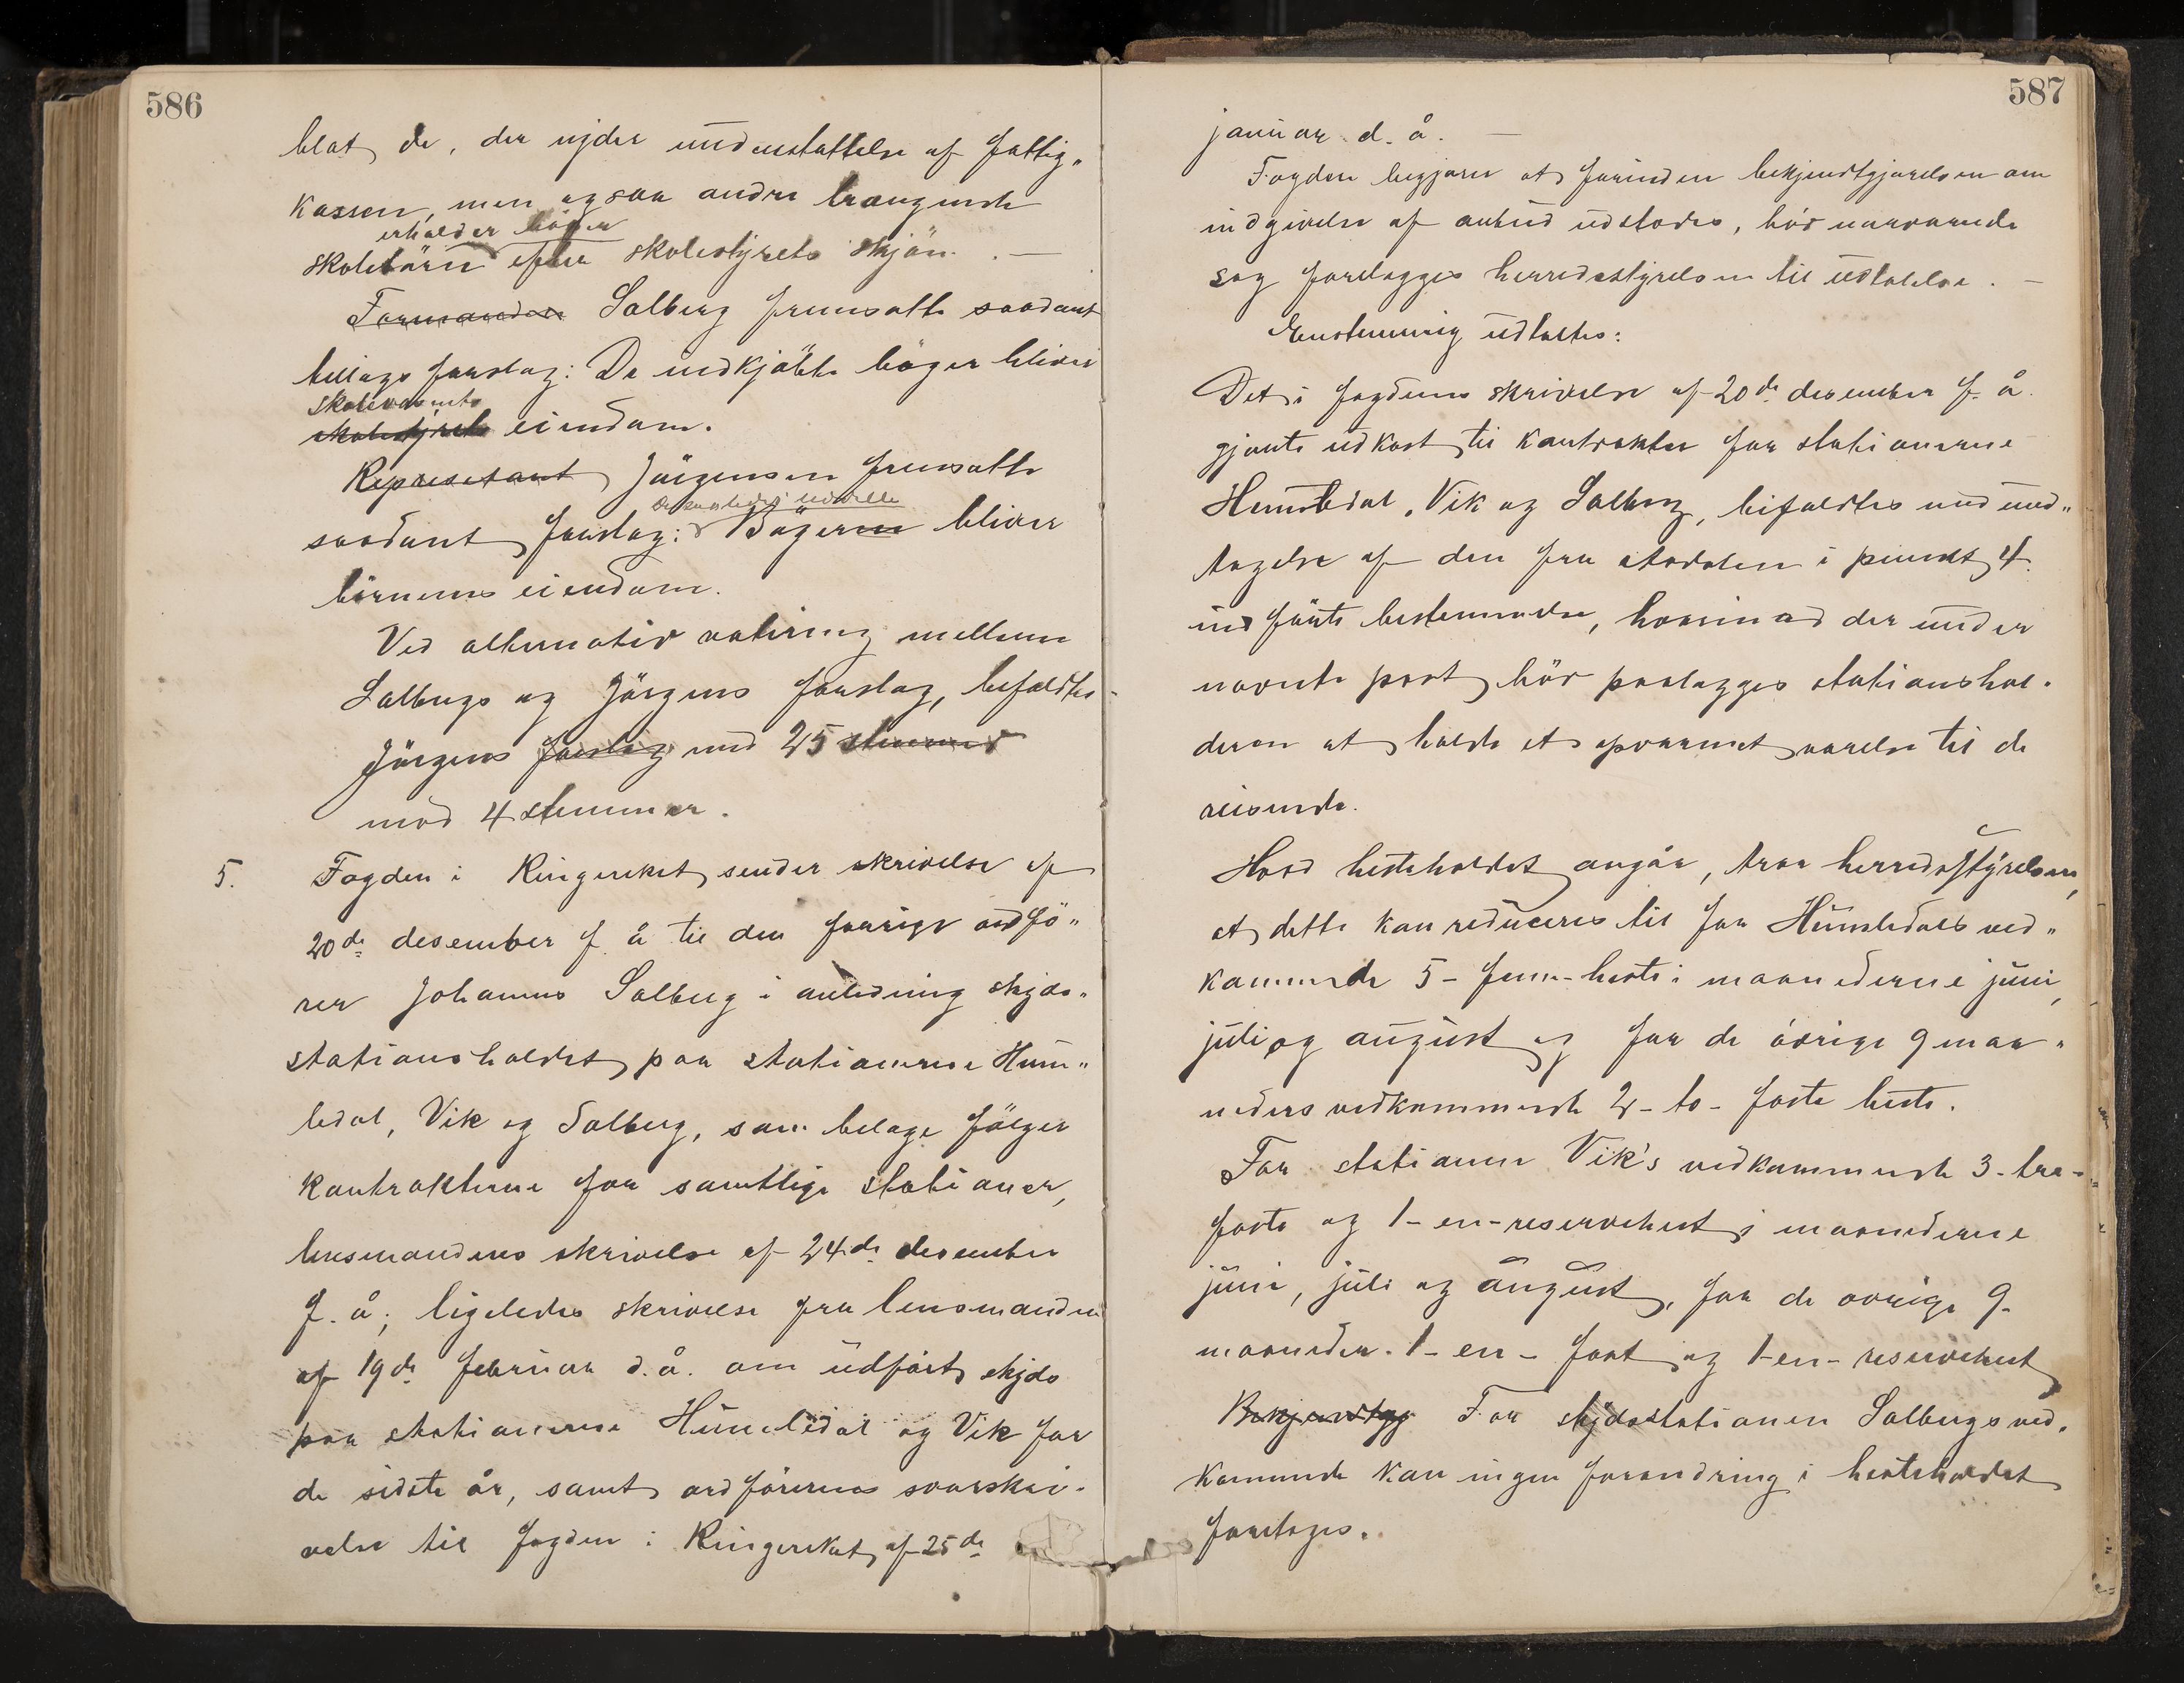 586
blot de, der nyder understøttelse af fattig„
kassen, men ogsaa andre trængende
erholder bøger
skolebørn efter skolestyrets skjøn. . —
Formanden Solberg fremsatte saadant
tillægs forslag: De indkjøbte bøger bliver
skolevæsenets
skolestyrets eiendom.
Represetant Jörgensen fremsatte
De saaledes uddelte
saadant forslag: Bögerne bliver
börnenes eiendom.
Ved alternativ votering mellem
Solbergs og Jörgens forslag, bifaldtes
Jörgens forslag med 25 stemmer
mod 4 stemmer.
5. Fogden i Ringeriket sender skrivelse af
20de desember f. å til den forrige ordfö„
rer Johannes Solberg i anledning skyds„
stationsholdet paa stationerne Hum„
ledal, Vik og Solberg, som belage fölger
kontrakterne for samtlige stationer,
lensmandens skrivelse af 24de desember
f. å; ligeledes skrivelse fra lensmanden
af 19de februar d. å. om udfört skyds
paa stationerne Humledal og Vik for
de sidste år, samt ordförerens svarskri-
velse til fogden i Ringeriket af 25de
587
januar d. å. —
Fogden begjærer at forinden bekjendtgjørelsen om
indgivelse af anbud udstedes, bör nærværende
sag forelægges herredsstyrelsen til udtalelse. —
Enstemmig udtaltes:
Det i fogdens skrivelse af 20de desember f. å.
gjorte udkast til kontrakter for stationerne
Humledal, Vik og Solberg, bifaldtes med und„
tagelse af den fra                i punkt 4
ind förte bestemmelse, hvorimod der under
nævnte post bör paalægges stationshol-
deren at holde et opvarmet værelse til de
reisende.
Hvad hesteholdet angår, tror herredsstyrelsen,
at dette kan reduceres til for Humledals ved„
kommende 5 - fem - heste i maanederne juni,
juli og august og for de övrige 9 maa„
neders vedkommende 2 - to - faste heste.
For stationen Vik's vedkommende 3 - tre -
faste og 1 - en - reservehest i maanederne
juni, juli og august, for de øvrige 9
maaneder. 1 - en - fast og 1 - en - reservehest
Bekjendtgj For skydsstationen Solbergs ved.
kommende kan ingen forandring i hesteholdet
foretages.